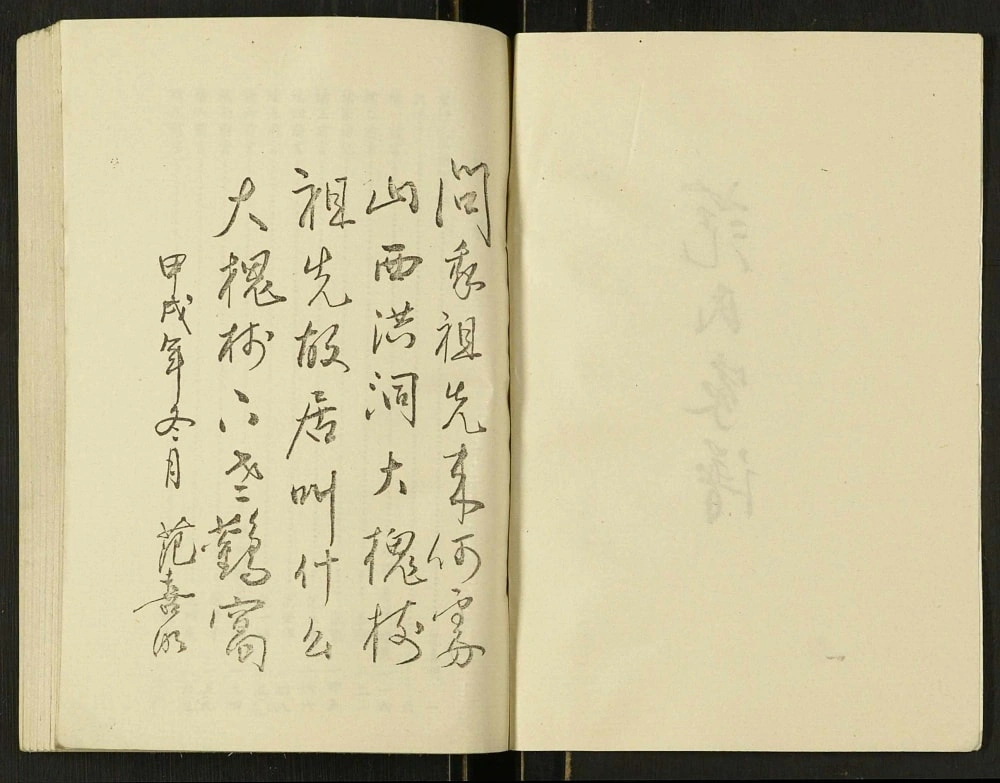 問我祖先来何處
山西洪洞大槐树
祖先故居叫什么
大槐树下老鸛窩
甲戌年冬月 范喜